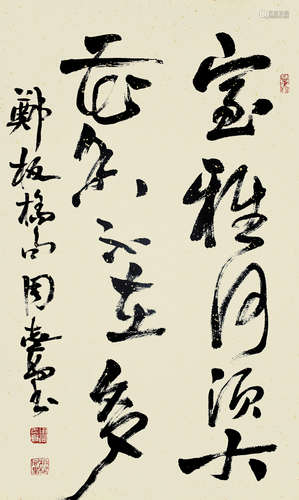 室雅何須大
花香不在多
鄭板橋句周